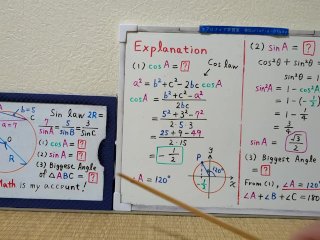 b=5
a=7
Sin law 2R=
7/sinA = 5/sinB = 3/sinC
(1) cosA = ?
(2) sinA = ?
(3) Biggest Angle
of △ABC = ?
Math is my account!
O
R
Explanation
(1) cosA = ?
Cos law
a² = b² + c² - 2bc cosA
cosA = (b² + c² - a²)/2bc
= (5² + 3² - 7²)/(2·5·3)
= (25 + 9 - 49)/(2·15)
= -1/2
∠A = 120°
P
y
x
120°
-1/2
(2) sinA = ?
cos²θ + sin²θ =
sin²θ = 1
sin²A = 1 - cos²A
= 1 - (-1/2)
= 1 - 1/4
= 3/4
sinA = √3/2
(3) Biggest
= ?
From (1), ∠A = 120°
∠A + ∠B + ∠C = 180